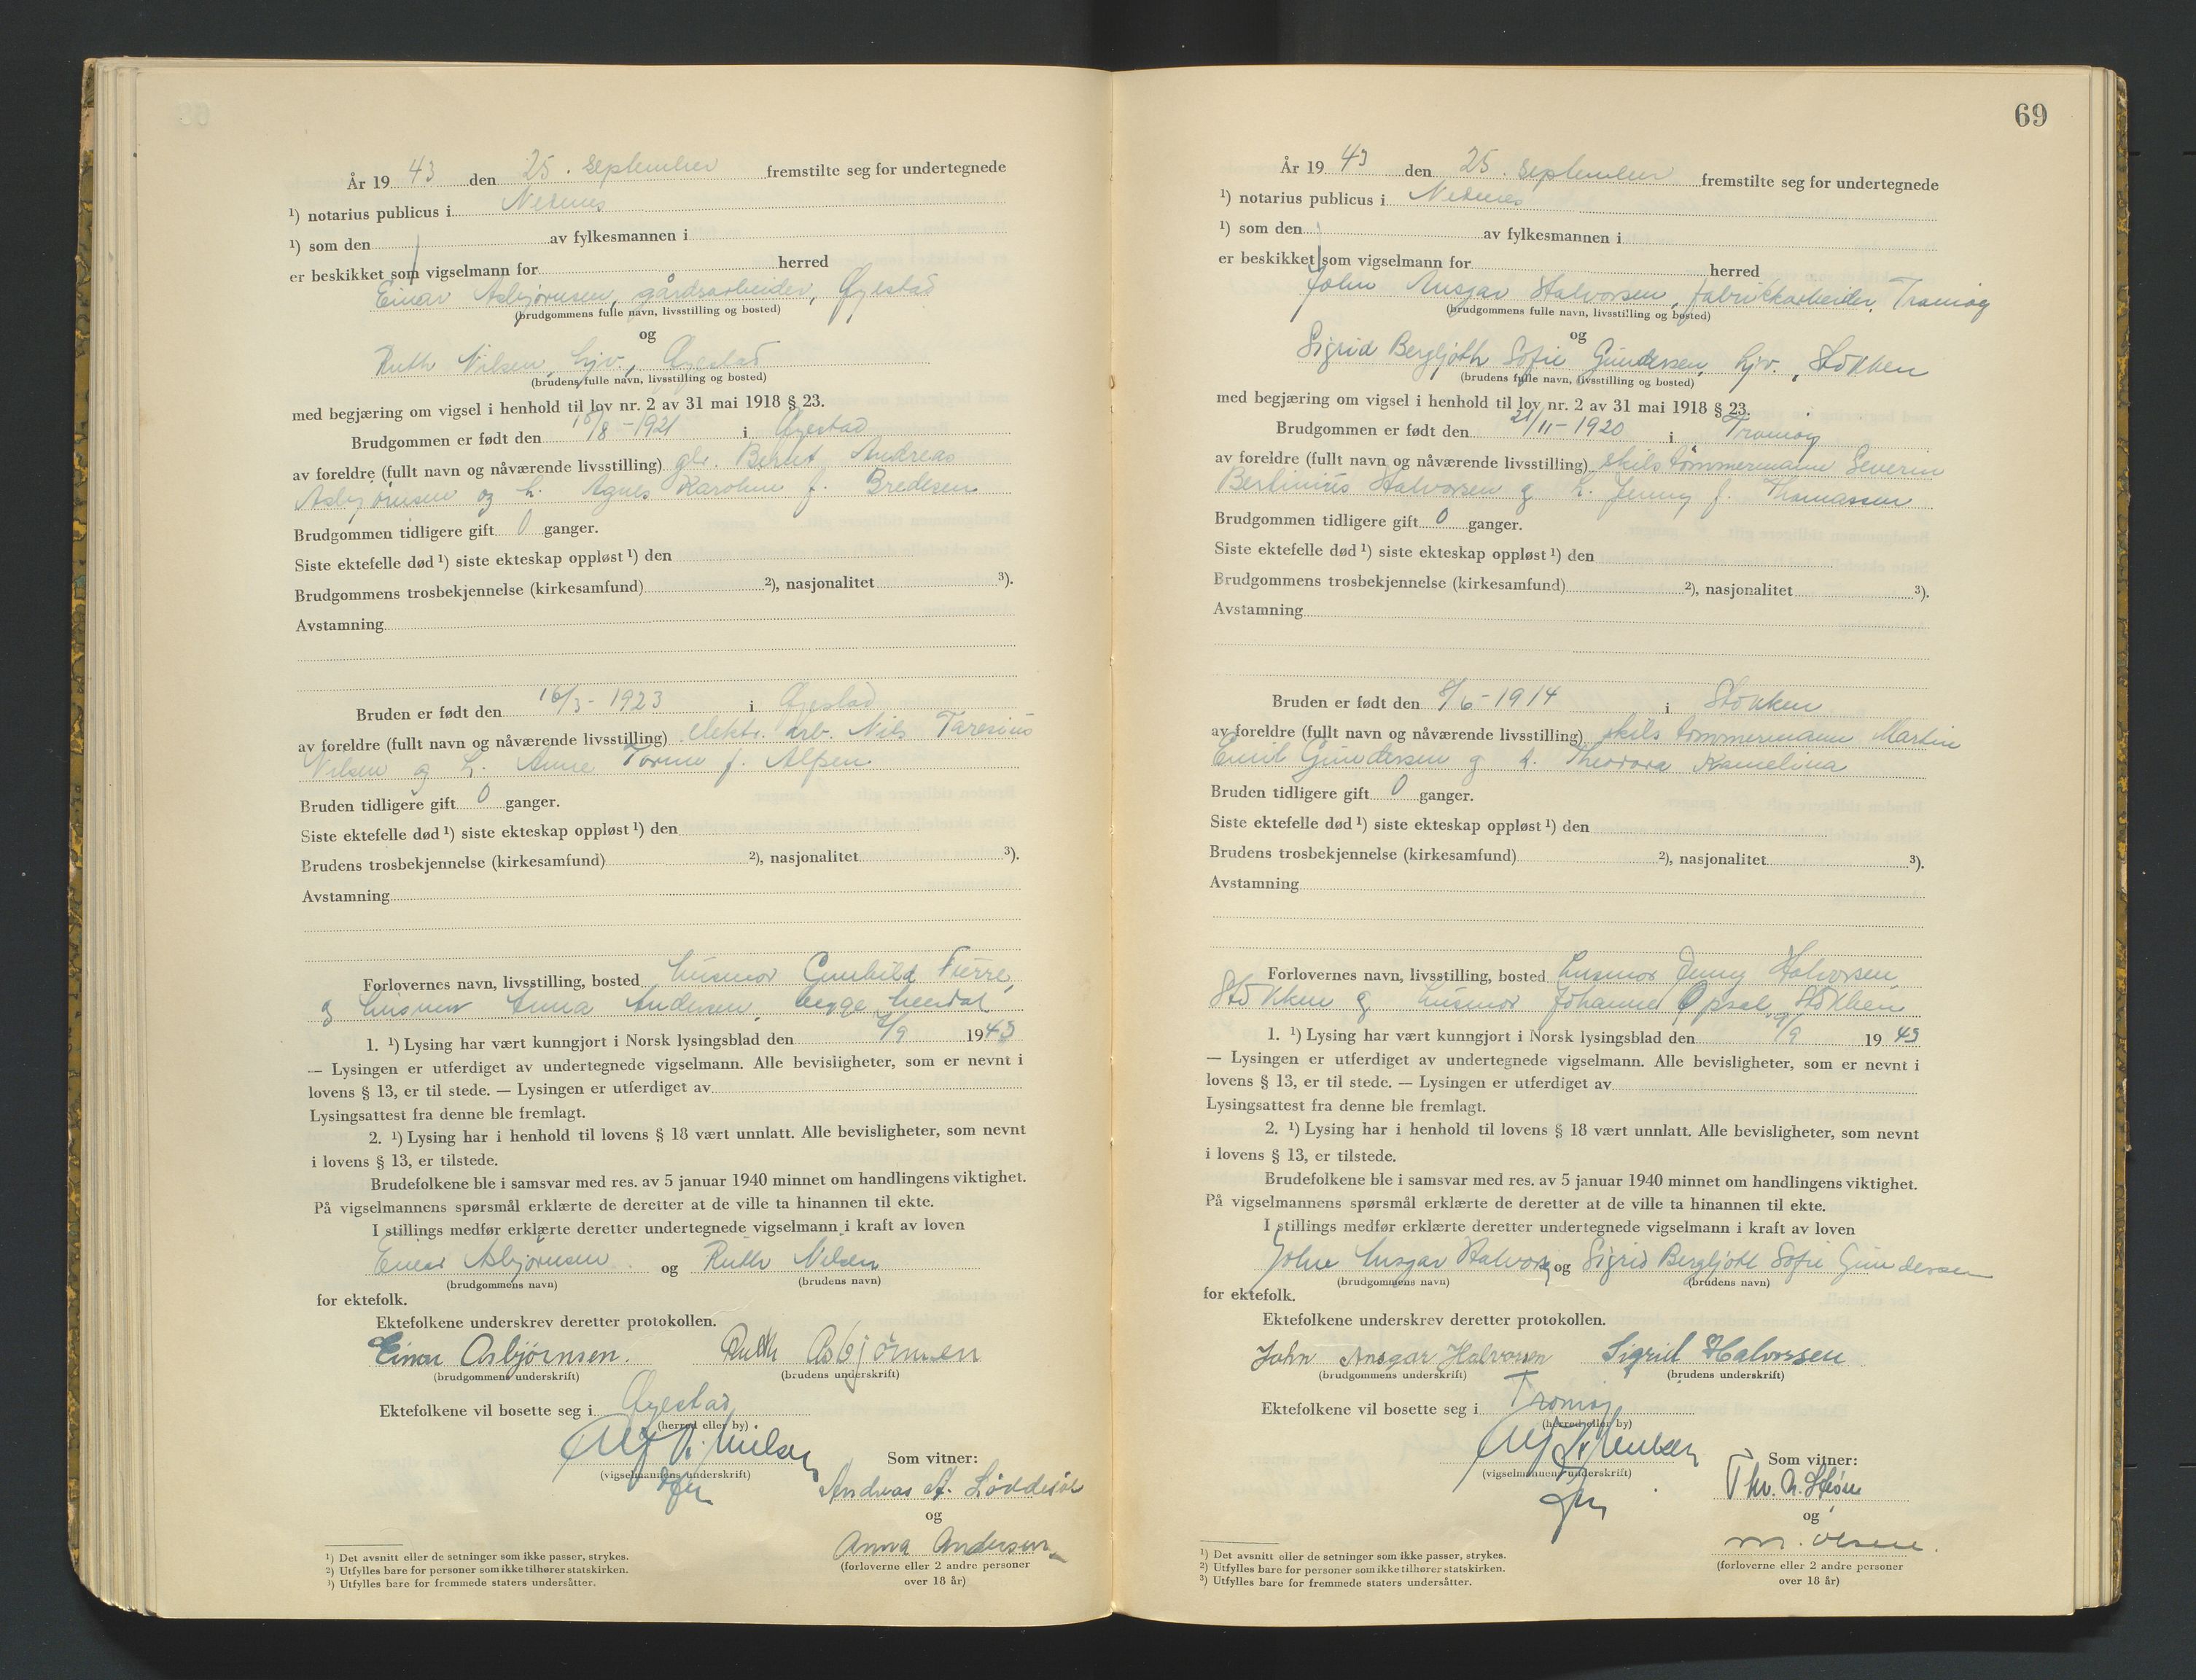 År 1943 den 25. september fremstilte seg for undertegnede
¹) notarius publicus i Nedenes
¹) som den av fylkesmannen i
er beskikket som vigselmann for herred
Einar Asbjørnsen, gårdsarbeider, Øyestad
(brudgommens fulle navn, livsstilling og bosted)
og
Ruth Nilsen, hjv., Øyestad
(brudens fulle navn, livsstilling og bosted)
med begjæring om vigsel i henhold til lov nr. 2 av 31 mai 1918 § 23.
Brudgommen er født den /8 - 1921 i Øyestad
av foreldre (fullt navn og nåværende livsstilling) Andreas
Asbjørnsen og h. Agnes Karoline f. Bredesen
Brudgommen tidligere gift 0 ganger.
Siste ektefelle død ¹) siste ekteskap oppløst ¹) den
Brudgommens trosbekjennelse (kirkesamfund) ²), nasjonalitet ³).
Avstamning
Bruden er født den 16/3 - 1923 i Øyestad
av foreldre (fullt navn og nåværende livsstilling) elektr. arb. Nils
Nilsen og h. Anne f.
Bruden tidligere gift 0 ganger.
Siste ektefelle død ¹) siste ekteskap oppløst ¹) den
Brudens trosbekjennelse (kirkesamfund) ²), nasjonalitet ³).
Avstamning
Forlovernes navn, livsstilling, bosted husmor Gunhild
og husmor Anna Andersen, begge
1. ¹) Lysing har vært kunngjort i Norsk lysingsblad den /9 1943
— Lysingen er utferdiget av undertegnede vigselmann. Alle bevisligheter, som er nevnt i
lovens § 13, er til stede. — Lysingen er utferdiget av
Lysingsattest fra denne ble fremlagt.
2. ¹) Lysing har i henhold til lovens § 18 vært unnlatt. Alle bevisligheter, som nevnt
i lovens § 13, er tilstede.
Brudefolkene ble i samsvar med res. av 5 januar 1940 minnet om handlingens viktighet.
På vigselmannens spørsmål erklærte de deretter at de ville ta hinannen til ekte.
I stillings medfør erklærte deretter undertegnede vigselmann i kraft av loven
Einar Asbjørnsen og Ruth Nilsen
(brudgommens navn) (brudens navn)
for ektefolk.
Ektefolkene underskrev deretter protokollen.
Einar Asbjørnsen. Ruth Asbjørnsen
(brudgommens underskrift) (brudens underskrift)
Ektefolkene vil bosette seg i Øyestad
(herred eller by)
(vigselmannens underskrift)
Som vitner:
Andreas A. Løddesøl
og
Anna Andersen
(forloverne eller 2 andre personer
over 18 år)
¹) Det avsnitt eller de setninger som ikke passer, strykes.
²) Utfylles bare for personer som ikke tilhører statskirken.
³) Utfylles bare for fremmede staters undersåtter.
69
År 1943 den 25. september fremstilte seg for undertegnede
¹) notarius publicus i Nedenes
¹) som den av fylkesmannen i
er beskikket som vigselmann for herred
John Ansgar Halvorsen, fabrikkarbeider, Tromøy
(brudgommens fulle navn, livsstilling og bosted)
og
Sigrid Bergljoth Sofie Gundersen, hjv., Stokken
(brudens fulle navn, livsstilling og bosted)
med begjæring om vigsel i henhold til lov nr. 2 av 31 mai 1918 § 23.
Brudgommen er født den 21/11 - 1920 i Tromøy
av foreldre (fullt navn og nåværende livsstilling) skibstømmermann Severin
Berlinius Halvorsen og h. Jenny f. Thomassen
Brudgommen tidligere gift 0 ganger.
Siste ektefelle død ¹) siste ekteskap oppløst ¹) den
Brudgommens trosbekjennelse (kirkesamfund) ²), nasjonalitet ³).
Avstamning
Bruden er født den 8/6 - 1914 i Stokken
av foreldre (fullt navn og nåværende livsstilling) skibstømmermann Martin
Emil Gundersen og h. Theodora Kamelina
Bruden tidligere gift 0 ganger.
Siste ektefelle død ¹) siste ekteskap oppløst ¹) den
Brudens trosbekjennelse (kirkesamfund) ²), nasjonalitet ³).
Avstamning
Forlovernes navn, livsstilling, bosted husmor Jenny Halvorsen,
Stokken og husmor Johanne Opsal, Stokken
1. ¹) Lysing har vært kunngjort i Norsk lysingsblad den 9/9 1943
— Lysingen er utferdiget av undertegnede vigselmann. Alle bevisligheter, som er nevnt i
lovens § 13, er til stede. — Lysingen er utferdiget av
Lysingsattest fra denne ble fremlagt.
2. ¹) Lysing har i henhold til lovens § 18 vært unnlatt. Alle bevisligheter, som nevnt
i lovens § 13, er tilstede.
Brudefolkene ble i samsvar med res. av 5 januar 1940 minnet om handlingens viktighet.
På vigselmannens spørsmål erklærte de deretter at de ville ta hinannen til ekte.
I stillings medfør erklærte deretter undertegnede vigselmann i kraft av loven
John Ansgar Halvorsen og Sigrid Bergljoth Sofie Gundersen
(brudgommens navn) (brudens navn)
for ektefolk.
Ektefolkene underskrev deretter protokollen.
John Ansgar Halvorsen Sigrid Halvorsen
(brudgommens underskrift) (brudens underskrift)
Ektefolkene vil bosette seg i Tromøy
(herred eller by)
(vigselmannens underskrift)
Som vitner:
og
M. Olsen.
(forloverne eller 2 andre personer
over 18 år)
¹) Det avsnitt eller de setninger som ikke passer, strykes.
²) Utfylles bare for personer som ikke tilhører statskirken.
³) Utfylles bare for fremmede staters undersåtter.